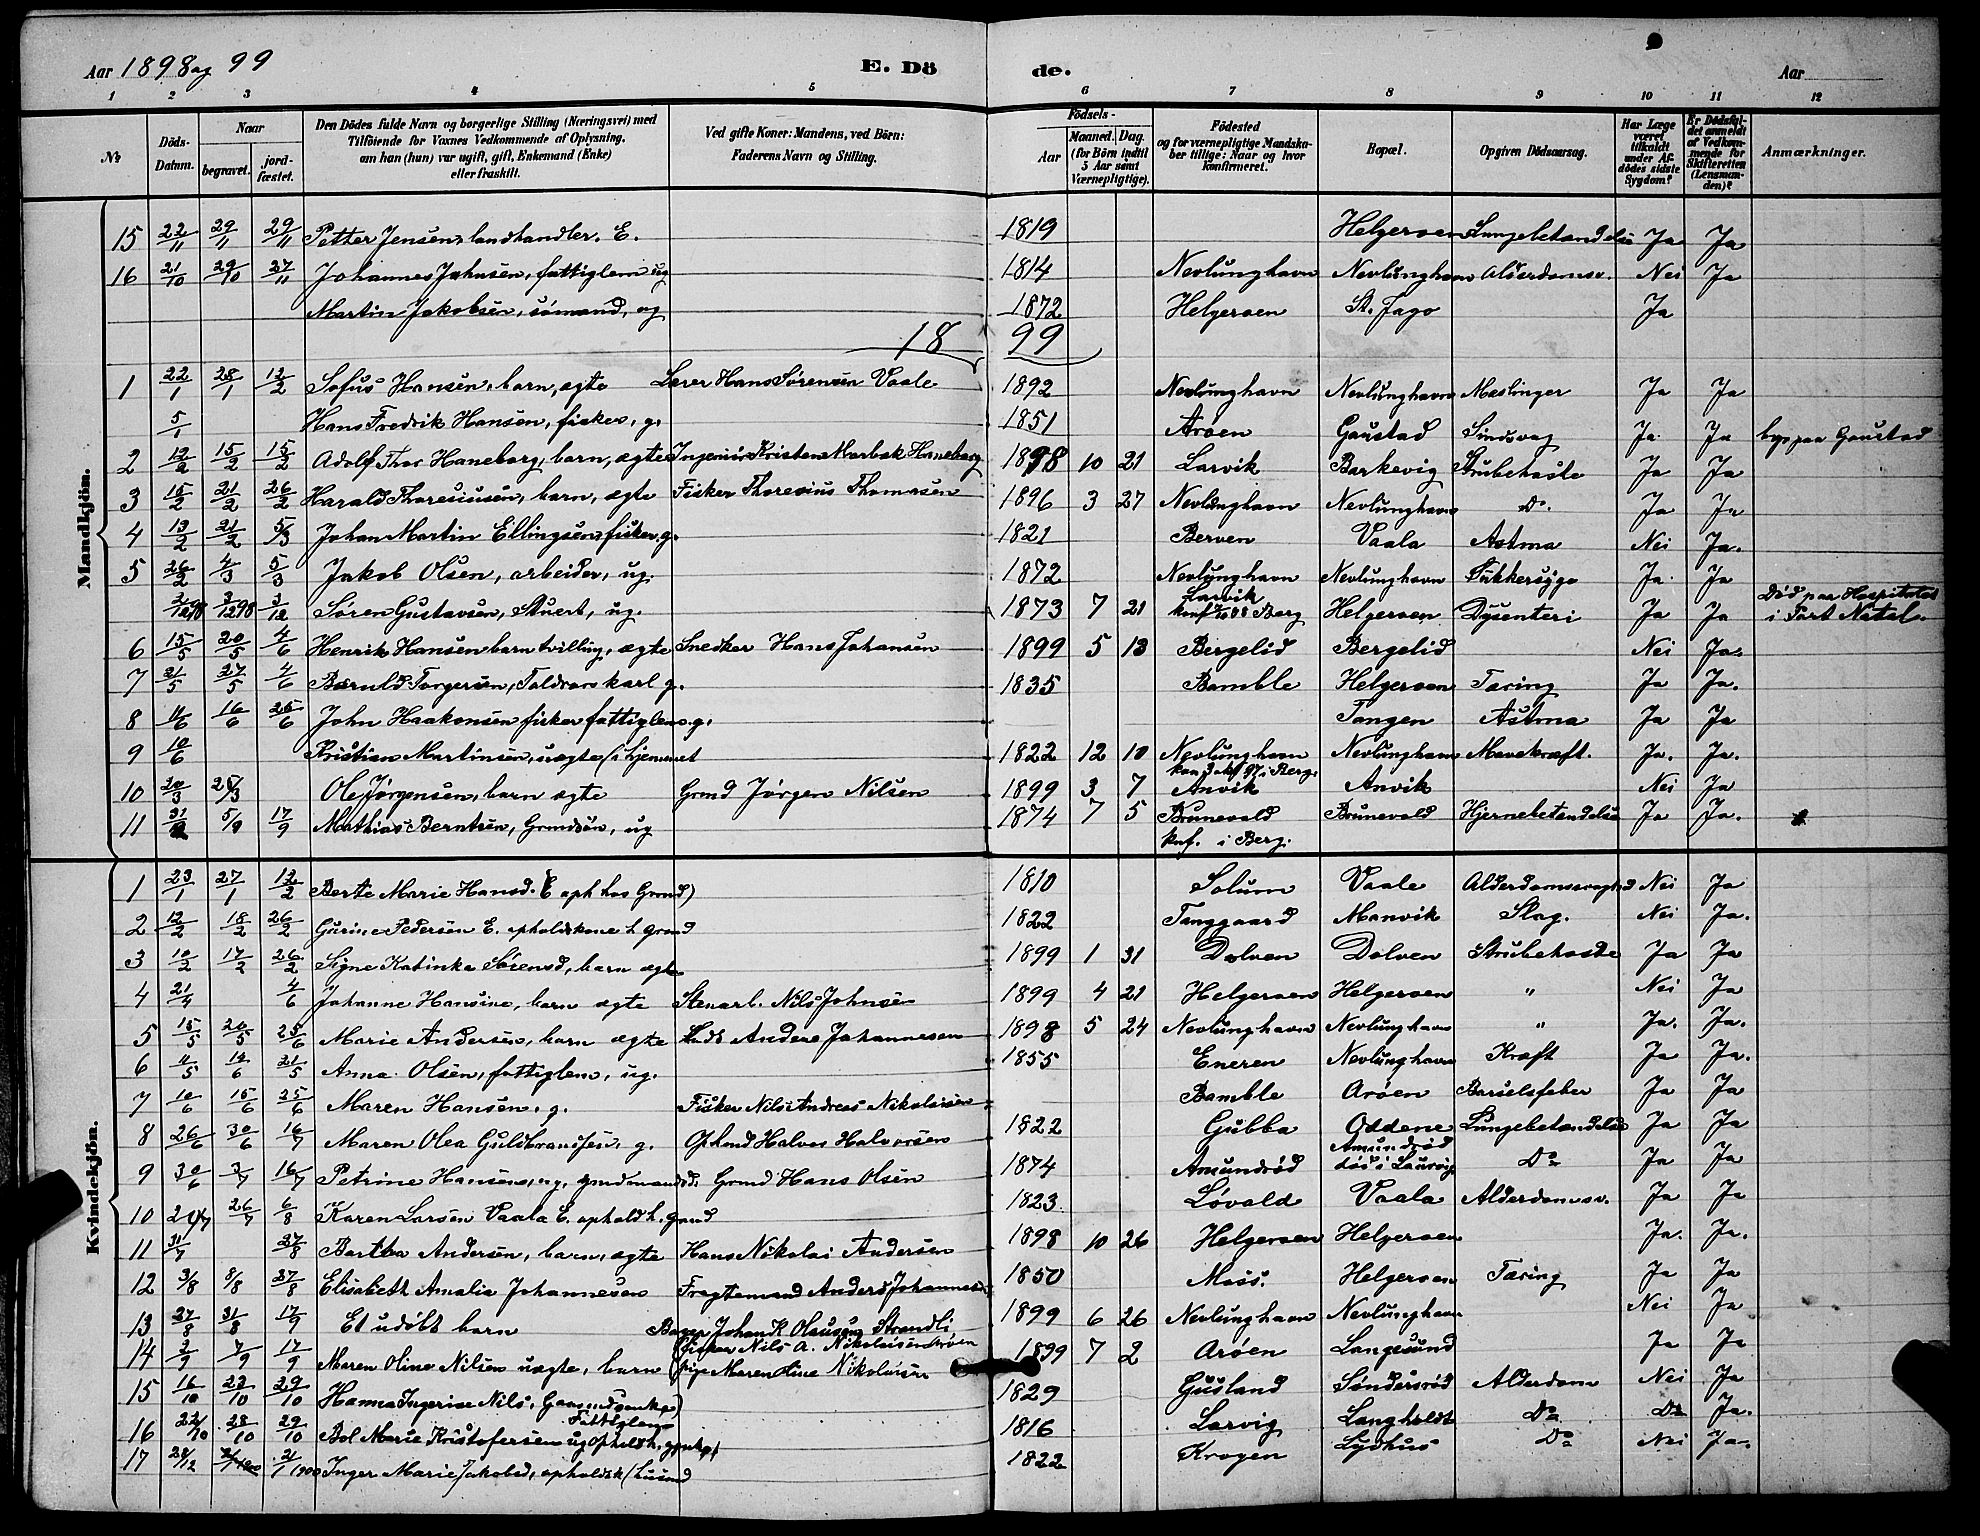 Aar 1898 og 99 E. Dö de. Aar
1 2 3 4 5 6 7 8 9 10 11 12
№ Döds-Datum. Naar begravet. jord-fæstet. Den Dödes fulde Navn og borgerlige Stilling (Næringsvei) med Tilföiende for Voxnes Vedkommende af Oplysning, om han (hun) var ugift, gift, Enkemand (Enke) eller fraskilt. Ved gifte Koner: Mandens, ved Börn: Faderens Navn og Stilling. Födsels- Aar Maaned. Dag. (for Börn indtil 5 Aar samt Værnepligtige). Födested og for værnepligtige Mandskaber tillige: Naar og hvor konfirmeret. Bopæl. Opgiven Dödsaarsag. Har Læge været tilkaldt under Afdödes sidste Sygdom? Er Dödsfaldet anmeldt af Vedkommende for Skifteretten (Lensmanden)? Anmærkninger.
Mandkjön.
15 22/11 29/11 29/11 Petter Jensen, landhandler. E. 1819 Helgeroen Lungebetændelse Ja Ja
16 21/10 29/10 27/11 Johannes Jahnsen, fattiglem ug 1814 Nevlunghavn Nevlunghavn Alderdomsv. Nei Ja
Martin Jakobsen, sømand, ug 1872 Helgeroen St. Jago Ja
18 99
1 22/1 28/1 12/2 Sofus Hansen, barn, ægte Lærer Hans Sørensen Vaale 1892 Nevlunghavn Nevlunghavn Meslinger Ja Ja
5/1 Hans Fredrik Hansen, fisker, g. 1851 Arøen Gaustad Sindsvag Ja Ja bys paa Gaustad
2 12/2 15/2 15/2 Adolf Thor Haneborg, barn, ægte Ingeniør Kristen Morbak Haneborg 1898 10 21 Larvik Barkevig Strubehoste Ja Ja
3 15/2 21/2 26/2 Harald Thoresiusen, barn, ægte Fisker Thoresius Thomasen 1896 3 27 Nevlunghavn Nevlunghavn Do. Ja Ja
4 13/2 21/2 5/3 Johan Martin Ellingsen, fisker, g. 1821 Berven Vaala Astma Nei Ja.
5 26/2 4/3 5/3 Jakob Olsen, arbeider, ug. 1872 Nevlunghavn Nevlunghavn Sukkersyge Ja Ja
2/12 98 3/12 98 3/12 Søren Gustavsen, Stuert, ug. 1873 7 21 Larvik knf 7/10 88 Berg Helgeroen Dysenteri Ja Ja Død paa Hospitalet i Port Natal.
6 15/5 20/5 4/6 Henrik Hansen barn tvilling, ægte Snedker Hans Johansen 1899 5 13 Bergelid Bergelid Nei Ja.
7 21/5 27/5 4/6 Bernld Torgersen, Foldvars karl g. 1835 Bamble Helgeroen Tæring Ja Ja.
8 11/6 16/6 25/6 John Haakonsen fisker fattiglem g. Tangen Astma Ja Ja
9 10/6 Kristian Martinsen, uægte (i hjemmet 1822 12 10 Nevlunghavn Nevlunghavn Mavekræft. Ja. Ja.
10 20/3 25/3 Ole Jørgensen, barn ægte Grmd Jørgen Nilsen 1899 3 7 Anvik Anvik Nei Ja
11 31/8 5/9 17/9 Mathias Berntsen, Grmdsøn, ug 1874 7 5 Brunevald knf. i Berg. Brunevald Hjernebetændelse Ja Ja.
Kvindekjön.
1 23/1 27/1 12/2 Berte Marie Hansd. E oph hos Grmd) 1810 Solum Vaale Alderdomssvaghed Nei Ja
2 12/2 18/2 26/2 Gurine Pedersen E. opholdskone h grmd 1822 Tanggaard Manvik Slag. Nei Ja.
3 10/2 17/2 26/2 Signe Katinka Sørensd, barn ægte 1899 1 31 Dolven Dolven Strubehoste Ja Ja
4 21/4 4/6 Johanne Hansine, barn ægte Stenarb. Nils Johnsen 1899 4 21 Helgeroen Helgeroen " Nei Ja
5 15/5 20/5 25/6 Marie Andersen, barn ægte Anders Johannesen 1898 5 24 Nevlunghavn Nevlunghavn " Ja. Ja.
6 11/5 14/6 21/5 Anna Olsen, fattiglem, ug. 1855 Eneren Nevlunghavn Kræft Ja Ja.
7 10/6 15/6 25/6 Maren Hansen, g. Fisker Nils Andreas Nikolaisen Bamble Arøen Barselsfeber Ja Ja
8 26/6 30/6 16/7 Maren Olea Guldbrandsen, g. Ophmd Halvor Halvorsen 1822 Gubba Oddene Lungebetændelse Ja Ja
9 30/6 3/7 16/7 Petrine Hansen, ug. grmdmandsd. Grmd Hans Olsen 1874 Amundrød Amundrød død i Laurvig Do Ja Ja
10 20/7 26/7 6/8 Karen Larsen Vaala E. ophold h. grmd 1823 Løvald Vaala Alderdomsv. Ja Ja
11 31/7 27/8 Bertha Andersen, barn, ægte Hans Nikolai Andersen 1898 10 26 Helgeroen Helgeroen Ja. Ja.
12 3/8 8/8 27/8 Elisabeth Amalia Johannesen Fragtemand Anders Johannesen 1850 Moss. Helgeroen Tæring Ja Ja
13 27/8 31/8 17/9 Et udøbt barn Bager Johan K Olausen Strandli 1899 6 26 Nevlunghavn Nevlunghavn Nei Ja
14 2/9 7/9 17/9 Maren Oline Nilsen uægte, barn (fisker Nils A. Nikolaisen Arøen pige Maren Oline Nikolaisen 1899 7 2 Arøen Langesund Ja Ja
15 16/10 23/10 29/10 Hanna Ingerine Nils, Gaarmdsenke) 1829 Gusland Søndersrød Alderdom Nei Ja
16 22/10 28/10 29/10 Bol Marie Kristofersen ug Fattiglem 1816 Larvig Langholdt Do Do Ja.
17 28/12 2/1 900 21/1 900 Inger Marie Jakobsd, opholdsk 1822 Krogen Lydhus Do Nei Ja.